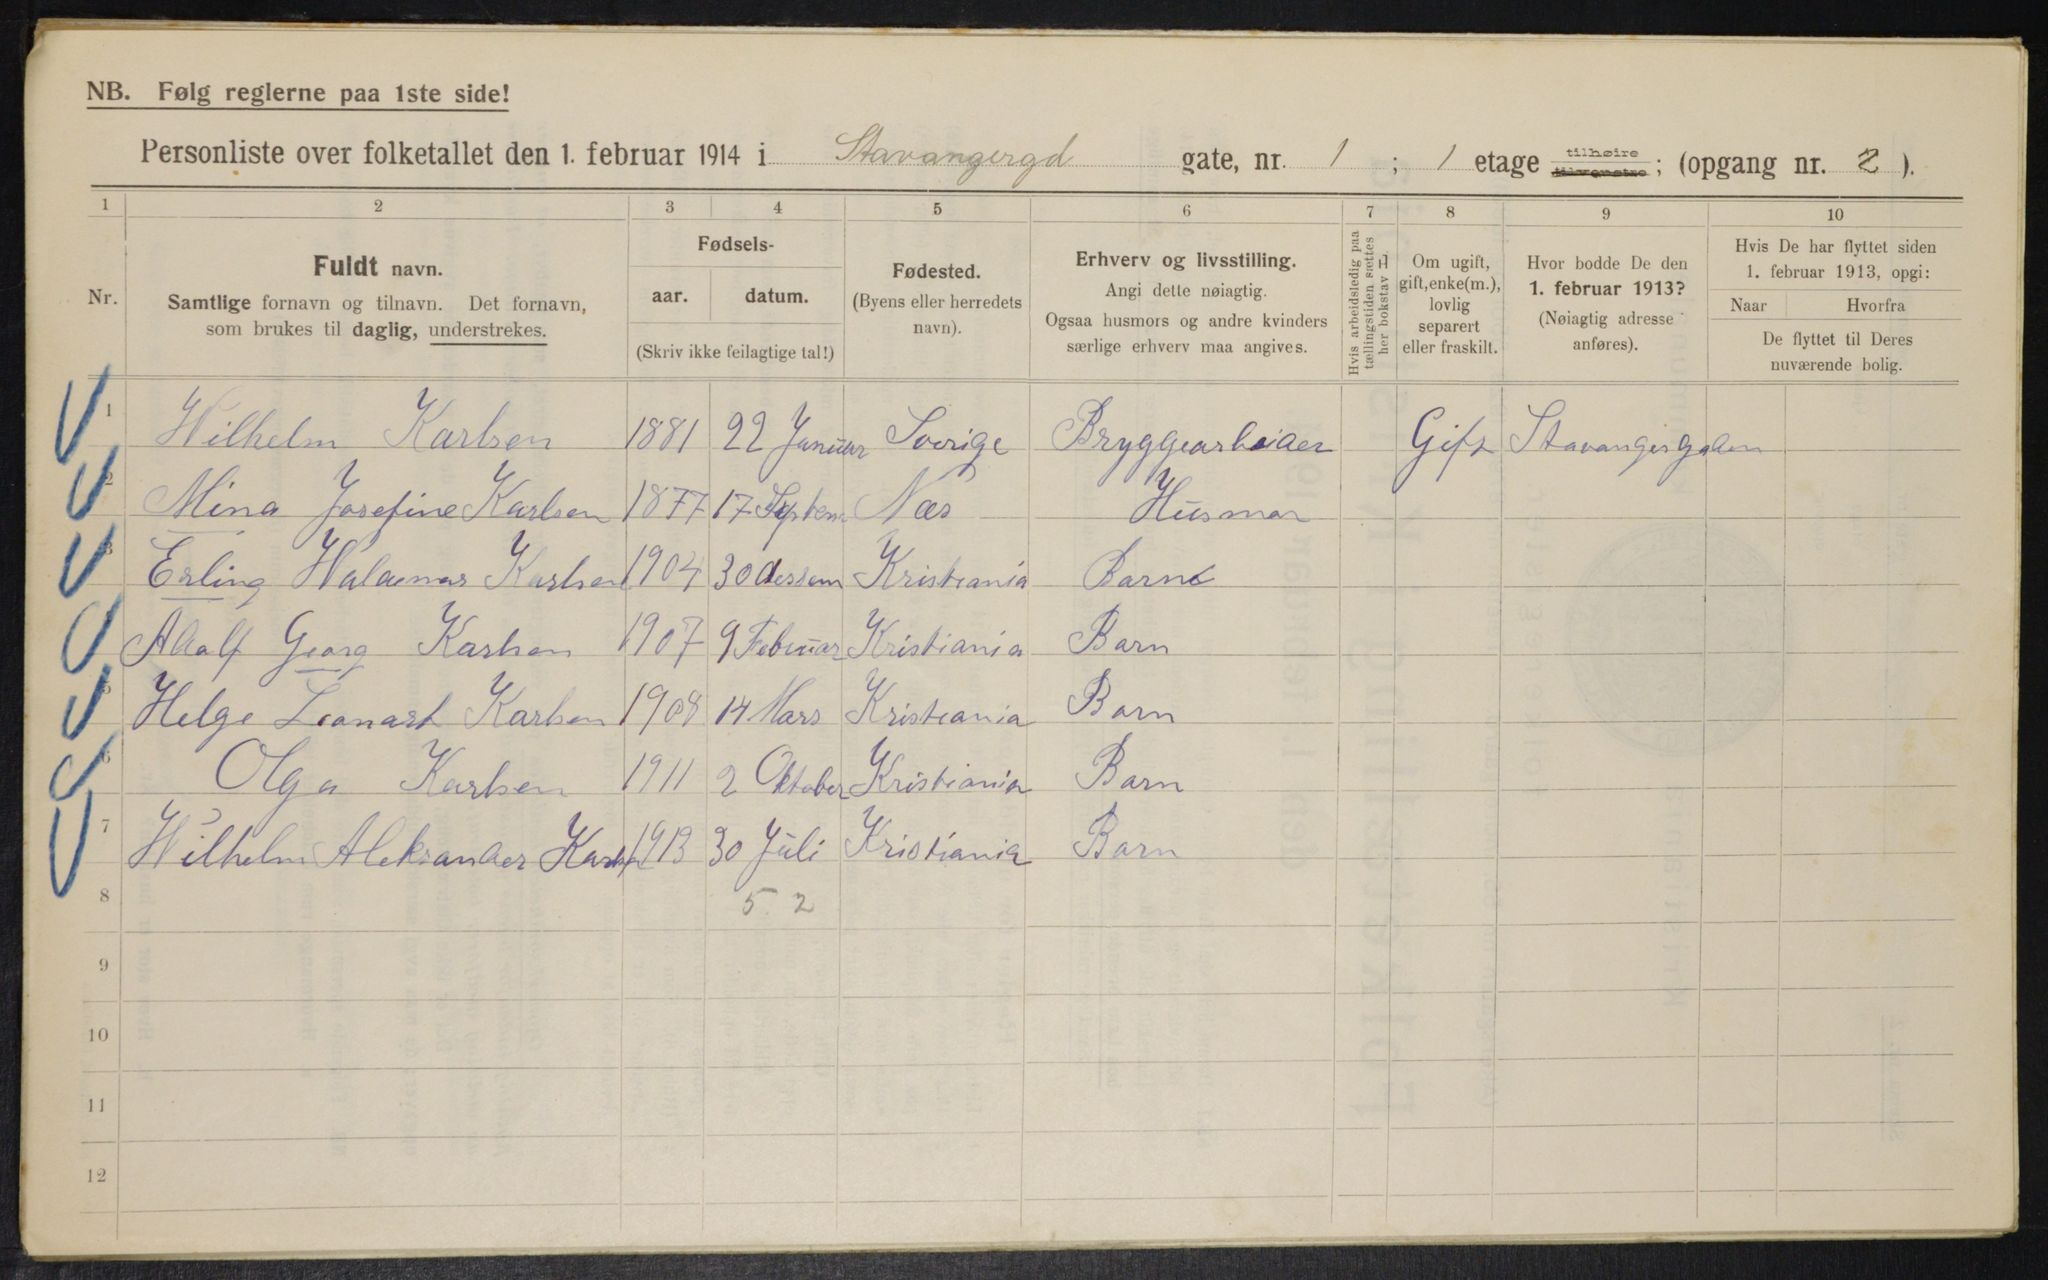 NB. Følg reglerne paa 1ste side!
Personliste over folketallet den 1. februar 1914 i Stavangergd gate, nr. 1 ; 1 etage tilhøire tilvenstre ; (opgang nr. 2 ).
1 2 3 4 5 6 7 8 9 10
Nr.
Fuldt navn.
Samtlige fornavn og tilnavn. Det fornavn,
som brukes til daglig, understrekes.
Fødsels-
aar. datum.
(Skriv ikke feilagtige tal!)
Fødested.
(Byens eller herredets
navn).
Erhverv og livsstilling.
Angi dette nøiagtig.
Ogsaa husmors og andre kvinders
særlige erhverv maa angives.
Hvis arbeidsledig paa
tællingstiden sættes
her bokstav L
Om ugift,
gift, enke(m.),
lovlig
separert
eller fraskilt.
Hvor bodde De den
1. februar 1913?
(Nøiagtig adresse
anføres).
Hvis De har flyttet siden
1. februar 1913, opgi:
Naar Hvorfra
De flyttet til Deres
nuværende bolig.
1 Wilhelm Karlsen 1881 22 Januar Sverige Bryggearbeider Gift Stavangergaden
2 Mina Josefine Karlsen 1877 17 Septem Næs Husmor
3 Erling Waldemar Karlsen 1904 30 dessem Kristiania Barn
4 Adolf Georg Karlsen 1907 9 Februar Kristiania Barn
5 Helge Leonart Karlsen 1908 14 Mars Kristiania Barn
6 Olga Karlsen 1911 2 Oktober Kristiania Barn
7 Wilhelm Aleksander Karlsen 1913 30 Juli Kristiania Barn
8 5 2
9
10
11
12